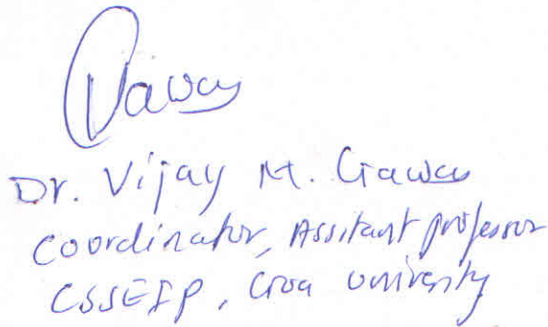 Dr. Vijay M. Gawas
Coordinator, Assitant professor
CSSEIP, Goa University